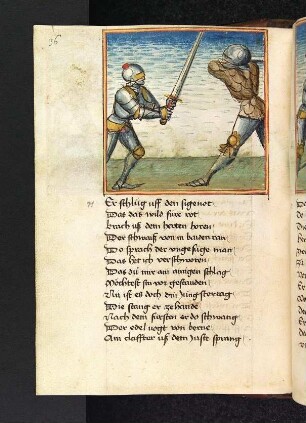 36
91 Er schlůg uff den sigenot
Das das wild fiwr rot
brach uß dem herten horen
Der schwaiß von in baiden ran
Do sprach der ungefüge man
Das het ich verschworen
Das du mir ain ainigen schlag
Möchtest sin vor gestanden
Nu ist es doch din jungster tag
Die stang er ze hande
Nach dem fürsten er do schwang
Der edel vogt von berne
Am claffter uß dem juste sprang